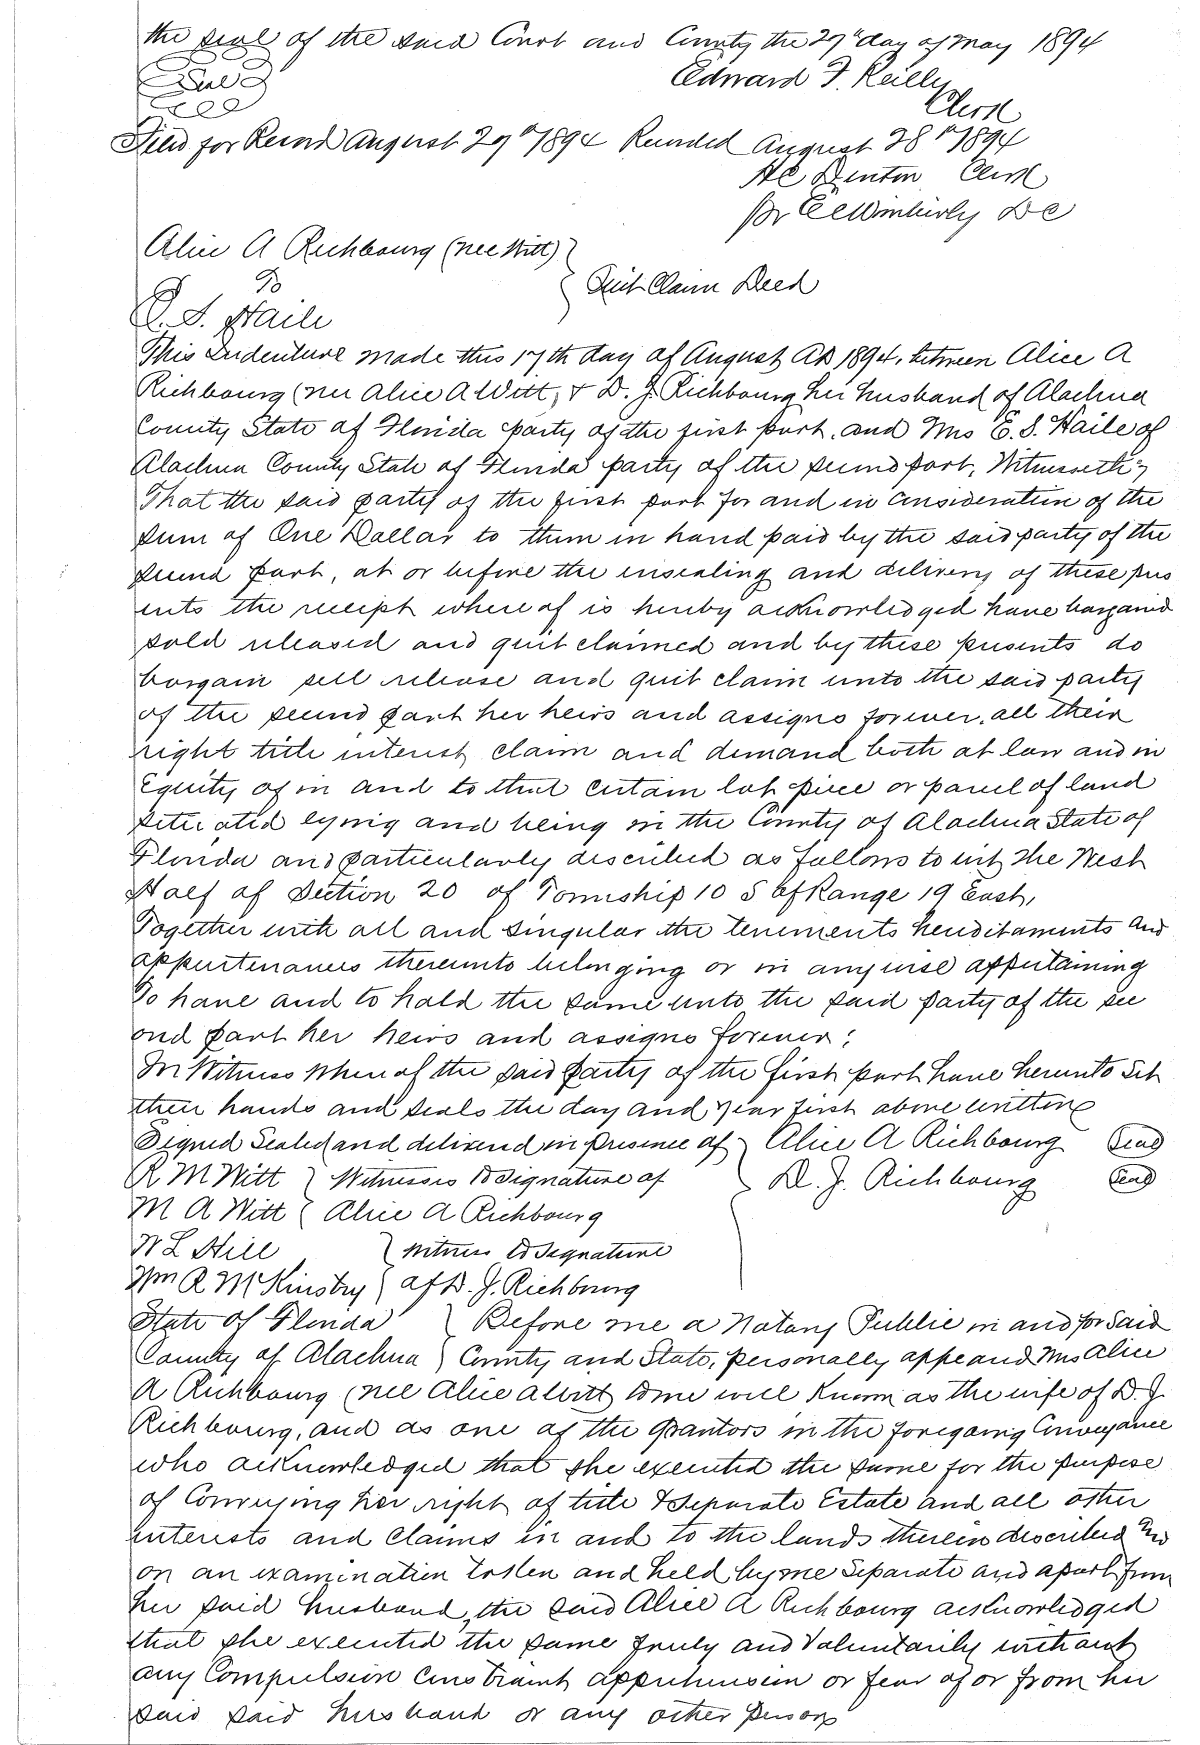 the seal of the said Court and County the 29" day of May 1894
Seal
Edward F. Reilly
Clerk
Filed for Record August 27th 1894 Recorded August 28th 1894
H C Denton Clerk
pr E C Wimberly D C
Alice A Richbourg (nee Witt)
To
Quit Claim Deed
E. S. Haile
This Indenture made this 17th day of August AD 1894, between Alice A
Richbourg (nee Alice A Witt, & D. J. Richbourg her husband of Alachua
County State of Florida party of the first part, and Mrs E. S. Haile of
Alachua County State of Florida party of the second part, Witnesseth;
That the said party of the first part for and in consideration of the
sum of One Dollar to them in hand paid by the said party of the
second part, at or before the ensealing and delivery of these pres
ents the receipt where of is hereby acknowledged have bargained
sold released and quit claimed and by these presents do
bargain sell release and quit claim unto the said party
of the second part her heirs and assigns forever, all their
right title interest claim and demand both at law and in
Equity of in and to that certain lot piece or parcel of land
situated lying and being in the County of Alachua State of
Florida and particularly described as follows to wit The West
Half of Section 20 of Township 10 S of Range 19 East,
Together with all and singular the tenements hereditaments and
appurtenances thereunto belonging or in anywise appertaining
To have and to hold the same unto the said party of the sec
ond part her heirs and assigns forever;
In Witness Where of the said party of the first part have hereunto set
their hands and seals the day and year first above written
Signed Sealed and delivered in presence of Alice A Richbourg Seal
R M Witt Witnesses to signature of D. J. Richbourg Seal
M A Witt Alice A Richbourg
W L Hill witness to signature
Wm R McKinstry of D. J. Richbourg
State of Florida Before me a Notary Public in and for said
County of Alachua County and State, personally appeared Mrs Alice
A Richbourg (nee Alice A Witt) to me well known as the wife of D. J.
Richbourg, and as one of the grantors in the foregoing Conveyance
who acknowledged that she executed the same for the purpose
of Conveying her right of title & separate Estate and all other
interests and claims in and to the lands therein described and
on an examination taken and held by me separate and apart from
her said husband, the said Alice A Richbourg acknowledged
that she executed the same freely and voluntarily without
any Compulsion Constraint apprehension or fear of or from her
said said husband or any other person